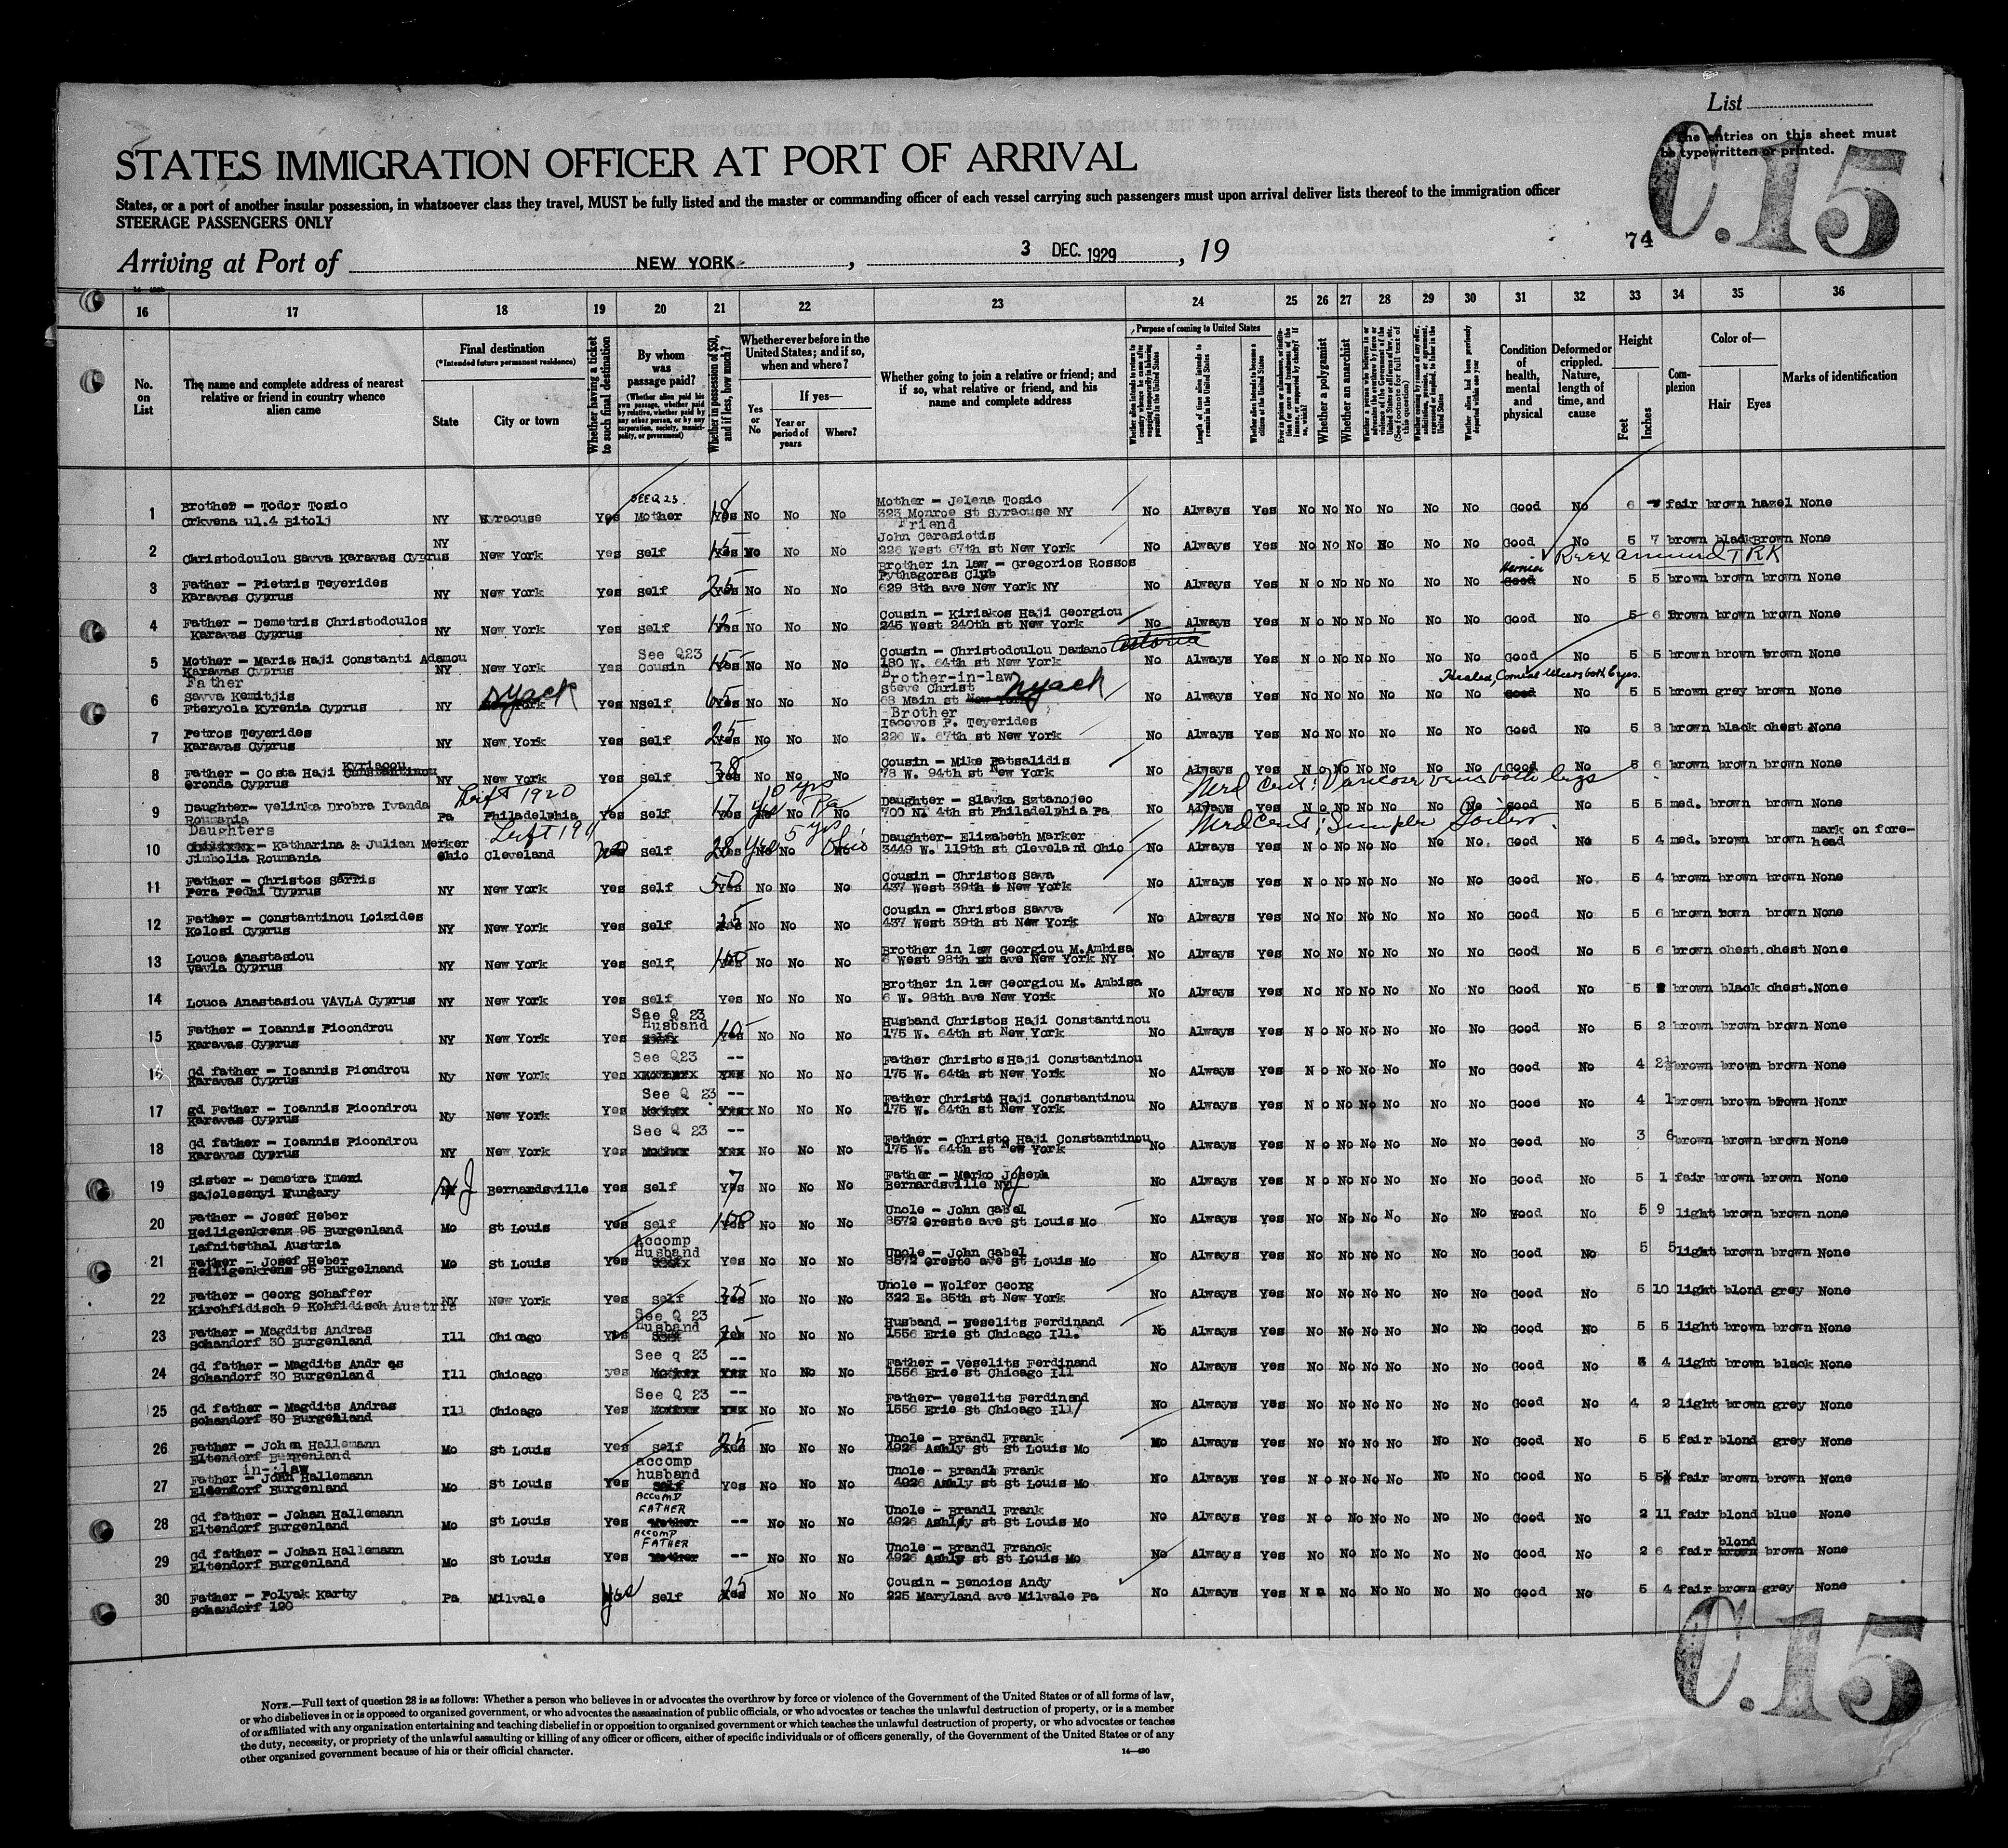 List
The entries on this sheet must
be typewritten or printed.
C.15
STATES IMMIGRATION OFFICER AT PORT OF ARRIVAL
States, or a port of another insular possession, in whatsoever class they travel, MUST be fully listed and the master or commanding officer of each vessel carrying such passengers must upon arrival deliver lists thereof to the immigration officer
STEERAGE PASSENGERS ONLY
74
Arriving at Port of NEW YORK , 3 DEC. 1929 , 19
16 17 18 19 20 21 22 23 24 25 26 27 28 29 30 31 32 33 34 35 36
No. on List
The name and complete address of nearest relative or friend in country whence alien came
Final destination
(*Intended future permanent residence)
State
City or town
Whether having a ticket to such final destination
By whom was passage paid?
(Whether alien paid his own passage, whether paid by relative, whether paid by any other person, or by any corporation, society, municipality, or government)
Whether in possession of $50, and if less, how much?
Whether ever before in the United States; and if so, when and where?
Yes or No
If yes—
Year or period of years
Where?
Whether going to join a relative or friend; and if so, what relative or friend, and his name and complete address
Purpose of coming to United States
Length of time alien intends to remain in the United States
Whether alien intends to become a citizen of the United States
Whether a polygamist
Whether an anarchist
Condition of health, mental and physical
Deformed or crippled. Nature, length of time, and cause
Height
Feet
Inches
Complexion
Color of—
Hair
Eyes
Marks of identification
1 Brother - Todor Tosic Crkvena ul.4 Bitolj NY Syracuse Yes SEE Q 23 Mother 18 Yes No No No Mother - Jelena Tosic 323 Monroe St Syracuse NY No Always Yes No No No No No No Good No 6 fair brown hazel None
2 Christodoulou Savva Karavas Cyprus NY New York Yes Self 15 Yes No No No Friend John Carasietis 226 West 67th st New York No Always Yes No No No No No No Good No 5 7 brown black Brown None
Reexamined TRK
3 Father - Pietris Teyerides Karavas Cyprus NY New York Yes Self 25 Yes No No No Brother in law - Gregorios Rossos Pythagoras Club 629 8th ave New York NY No Always Yes No No No No No Hernia Good No 5 5 brown brown brown None
4 Father - Demetris Christodoulos Karavas Cyprus NY New York Yes Self 12 Yes No No No Cousin - Kiriakos Haji Georgiou 245 West 240th st New York No Always Yes No No No No No No Good No 5 6 Brown brown brown None
5 Mother - Maria Haji Constanti Adamou Karavas Cyprus NY New York Yes See Q23 Cousin 15 Yes No No No Cousin - Christodoulou Damiano Astoria 180 W. 64th st New York No Always Yes No No No No No No Good No 5 5 brown brown brown None
6 Father Savva Kemitjis Fteryola Kyrenia Cyprus NY Nyack Yes Self 65 Yes No No No Brother-in-law Steve Christ Nyack 68 Main st New York No Always Yes No No No No No No Healed, Corneal Ulcers both Eyes. Good No 5 5 brown grey brown None
7 Petros Teyerides Karavas Cyprus NY New York Yes Self 25 Yes No No No Brother Iacovos P. Teyerides 226 W. 67th st New York No Always Yes No No No No No No Good No 5 8 brown black chest None
8 Father - Costa Haji Kyriacou Constantinou NY New York Yes Self 38 Yes No No No Cousin - Mike Patsalidis 78 W. 94th st New York No Always Yes No No No No No No Good No 5 6 brown brown brown None
9 Daughter- Velinka Drobra Ivanda Roumania Pa Left 1920 Philadelphia Yes Self 17 Yes Yes 10 yrs Pa Daughter - Slavka Sztanojeo 700 N. 4th st Philadelphia Pa No Always Yes No No No No No No Good No 5 5 med. brown brown None
Med Cert: Varicose veins both legs
10 Daughters - Katharina & Julian Merker Jimbolia Roumania Ohio Cleveland Self 28 Yes Yes 5 yrs Ohio Daughter- Elizabeth Marker 3449 W. 119th st Cleveland Ohio No Always Yes No No No No No No. Good No 5 4 med. brown brown mark on forehead
Med Cert: Simple Goiter.
11 Father - Christos Sarris Pera Pedhi Cyprus NY New York Yes Self 50 Yes No No No Cousin - Christos Sava 437 West 39th s New York No Always Yes No No No No No No Good No 5 4 brown brown brown None
12 Father - Constantinou Loizides Kolosi Cyprus NY New York Yes Self 25 Yes No No No Cousin - Christos Savva 437 West 39th st New York No Always Yes No No No No No No Good No 5 6 brown brown None
13 Louca Anastasiou Vavla Cyprus NY New York Yes Self 100 Yes No No No Brother in law Georgiou M.Ambisa 6 West 98th st ave New York NY No Always Yes No No No No No No Good No 5 6 brown chest. chest None
14 Louca Anastasiou VAVLA Cyprus NY New York Yes Self Yes No No No Brother in law Georgiou M. Ambisa 6 W. 98th ave New York No Always Yes No No No No No No Good No 5 brown black chest. None
15 Father - Ioannis Picondrou Karavas Cyprus NY New York Yes See Q 23 Husband 10 Yes No No No Husband Christos Haji Constantinou 175 W. 64th st New York No Always Yes No No No No No No Good No 5 2 brown brown brown None
16 Gd father - Ioannis Piondrou Karavas Cyprus Ny New York Yes See Q23 -- No No No Father Christos Haji Constantinou 175 W. 64th st New York No Always Yes No No No No No No Good No 4 2½ brown brown brown None
17 gd Father - Ioannis Picondrou Karavas Cyprus Ny New York Yes See Q 23 -- No No No Father Christi Haji Constantinou 175 W. 64th st New York No Always Yes No No No No No No Good No 4 1 brown brown brown Nonr
18 Gd father - Ioannis Picondrou Karavas Cyprus NY New York Yes See Q 23 -- No No No Father - Christo Haji Constantinou 175 W. 64th st New York No Always Yes No No No No No No Good No 3 6 brown brown brown None
19 Sister - Demetra Imexi Sajolesenyi Hungary NJ Bernardsville Yes Self 7 Yes No No No Father - Marko Joseph Bernardsville NJ No Always Yes No No No No No No Good No 5 1 fair brown brown None
20 Father - Josef Heber Heiligenkrenz 95 Burgenland Mo St Louis Yes Self 100 Yes No No No Uncle - John Gabel 8572 Oreste ave St Louis Mo No Always Yes No No No No No No Good No 5 9 light brown brown none
21 Lafnitsthal Austria Father - Josef Heber Heiligenkrenz 95 Burgelnand Mo St Louis Yes Accomp Husband Yes No No No Uncle - John Gabel 8572 Oreste ave St Louis Mo No Always Yes No No No No No No Good No 5 5 light brown brown None
22 Father - Georg Schaffer Kirchfidisch 9 Kohfidisch Austria NY New York Yes Self 30 Yes No No No Uncle - Wolfer Georg 322 E. 85th st New York No Always Yes No No No No No No Good No 5 10 light blond grey None
23 Father - Magdits Andras Schandorf 30 Burgenland Ill Chicago Yes See Q 23 Husband 25 Yes No No No Husband - Veselits Ferdinand 1556 Erie St Chicago Ill. No Always Yes No No No No No No Good No 5 5 light brown brown None
24 Gd father - Magdits Andras Schandorf 30 Burgenland Ill Chicago yes See q 23 -- No No No Father - Veselits Ferdinand 1556 Erie st Chicago Ill No Always Yes No No No No No No Good No 3 4 light brown black None
25 Gd father - Magdits Andras Schandorf 30 Burgenland Ill Chicago Yes See Q 23 -- No No No Father- Veselits Ferdinand 1556 Erie St Chicago Ill No Always Yes No No No No No No Good No 4 2 light brown grey None
26 Father - Johan Hallemann Eltendorf Burgenland Mo St Louis Yes Self 25 Yes No No No Uncle - Brandl Frank 4926 Ashly st St Louis Mo No Always Yes No No No No No No Good No 5 5 fair blond grey None
27 Father in-law - John Hallemann Eltendorf Burgenland Mo St Louis Yes accomp husband Yes No No No Uncle - Brandl Frank 4926 Ashly st st Louis Mo No Always Yes No No No No No No Good No 5 5 fair brown brown None
28 Gd father - Johan Hallemann Eltendorf Burgenland Mo St Louis Yes ACCOMP FATHER Mother -- No No No Uncle - Brandl Frank 4926 Ashly st St Louis Mo No Always Yes No No No No No No Good No 2 11 fair blond blue None
29 Gd father - Johan Hallemann Eltendorf Burgenland Mo St Louis Yes ACCOMP FATHER Mother -- No No No Uncle - Brandl Franck 4926 Ashly st St Louis Mo No Always Yes No No No No No No Good No 2 6 fair blond brown brown None
30 Father - Polyak Karty Schandorf 120 Pa Milvale Yes Self 25 Yes No No No Cousin - Bencics Andy 225 Maryland ave Milvale Pa No Always Yes No No No No No No Good No 5 4 fair brown grey None
C.15
NOTE.—Full text of question 28 is as follows: Whether a person who believes in or advocates the overthrow by force or violence of the Government of the United States or of all forms of law,
or who disbelieves in or is opposed to organized government, or who advocates the assassination of public officials, or who advocates or teaches the unlawful destruction of property, or is a member
of or affiliated with any organization entertaining and teaching disbelief in or opposition to organized government or which teaches the unlawful destruction of property, or who advocates or teaches
the duty, necessity, or propriety of the unlawful assaulting or killing of any officer or officers, either of specific individuals or of officers generally, of the Government of the United States or of any
other organized government because of his or their official character.
14—480